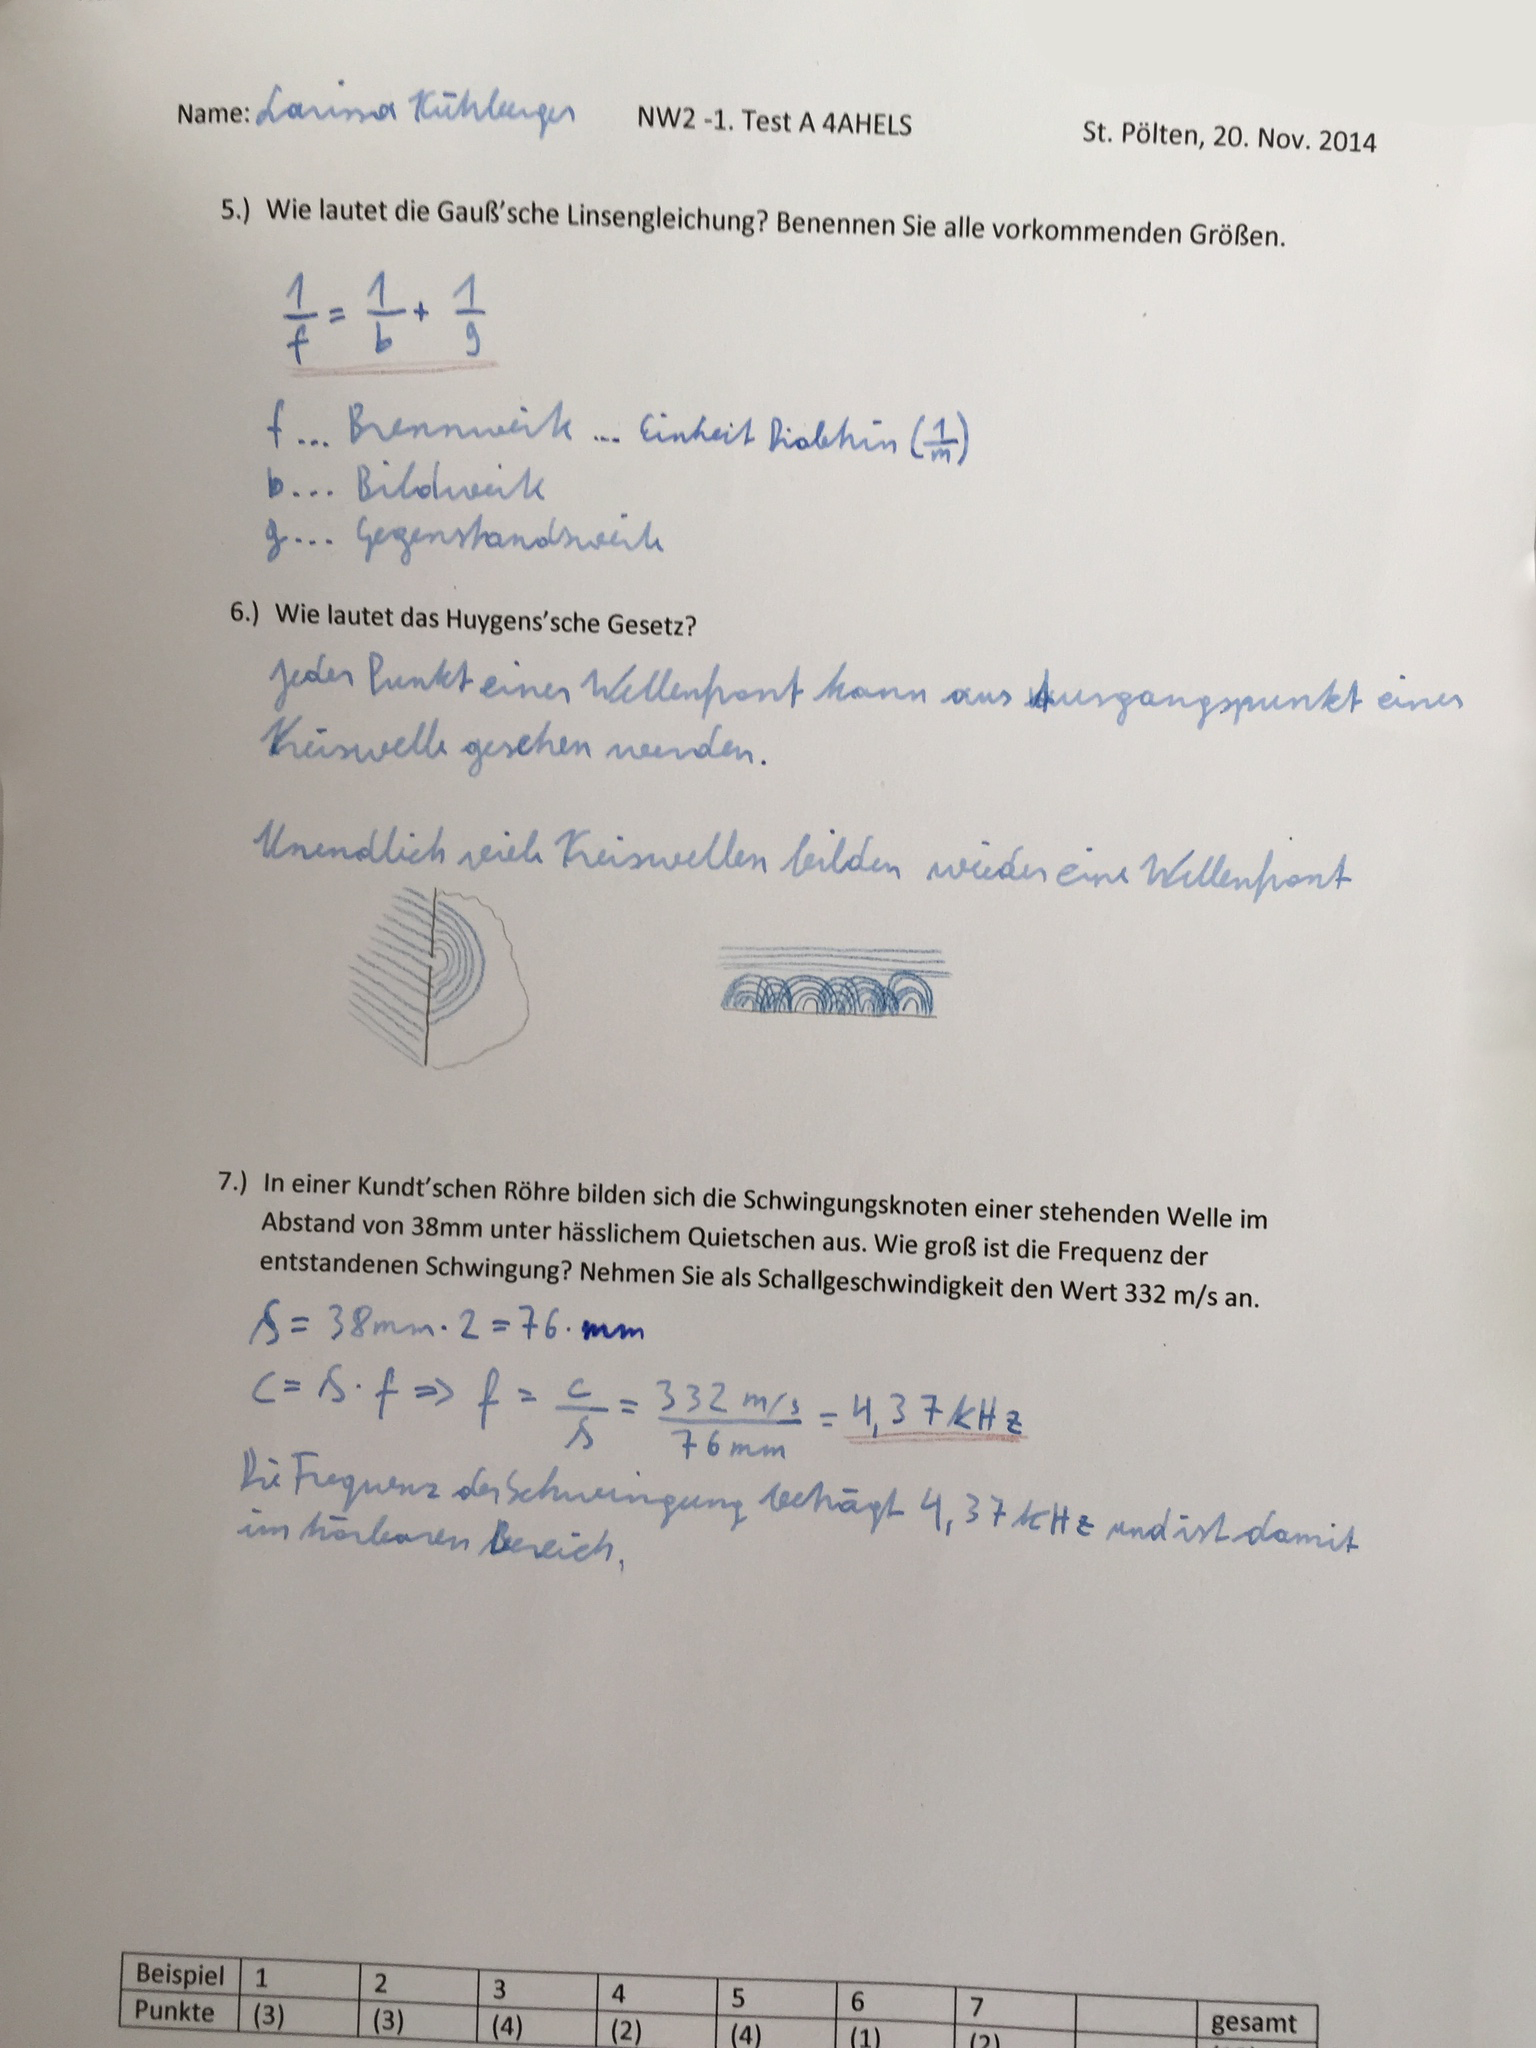 Name: Larissa Kühberger NW2 -1. Test A 4AHELS St. Pölten, 20. Nov. 2014
5.) Wie lautet die Gauß'sche Linsengleichung? Benennen Sie alle vorkommenden Größen.
1/f = 1/b + 1/g
f ... Brennweite ... Einheit (1/m)
b ... Bildweite
g ... Gegenstandsweite
6.) Wie lautet das Huygens'sche Gesetz?
Jeder Punkt einer Wellenfront kann aus Ausgangspunkt einer
Kreiswelle gesehen werden.
Unendlich viele Kreiswellen bilden wieder eine Wellenfront
7.) In einer Kundt'schen Röhre bilden sich die Schwingungsknoten einer stehenden Welle im
Abstand von 38mm unter hässlichem Quietschen aus. Wie groß ist die Frequenz der
entstandenen Schwingung? Nehmen Sie als Schallgeschwindigkeit den Wert 332 m/s an.
λ = 38mm · 2 = 76 · mm
c = λ · f => f = c/λ = 332 m/s / 76mm = 4,37 kHz
Die Frequenz der Schwingung beträgt 4,37 kHz und ist damit
im hörbaren Bereich.
Beispiel 1 2 3 4 5 6 7
Punkte (3) (3) (4) (2) (4) (1) (2) gesamt